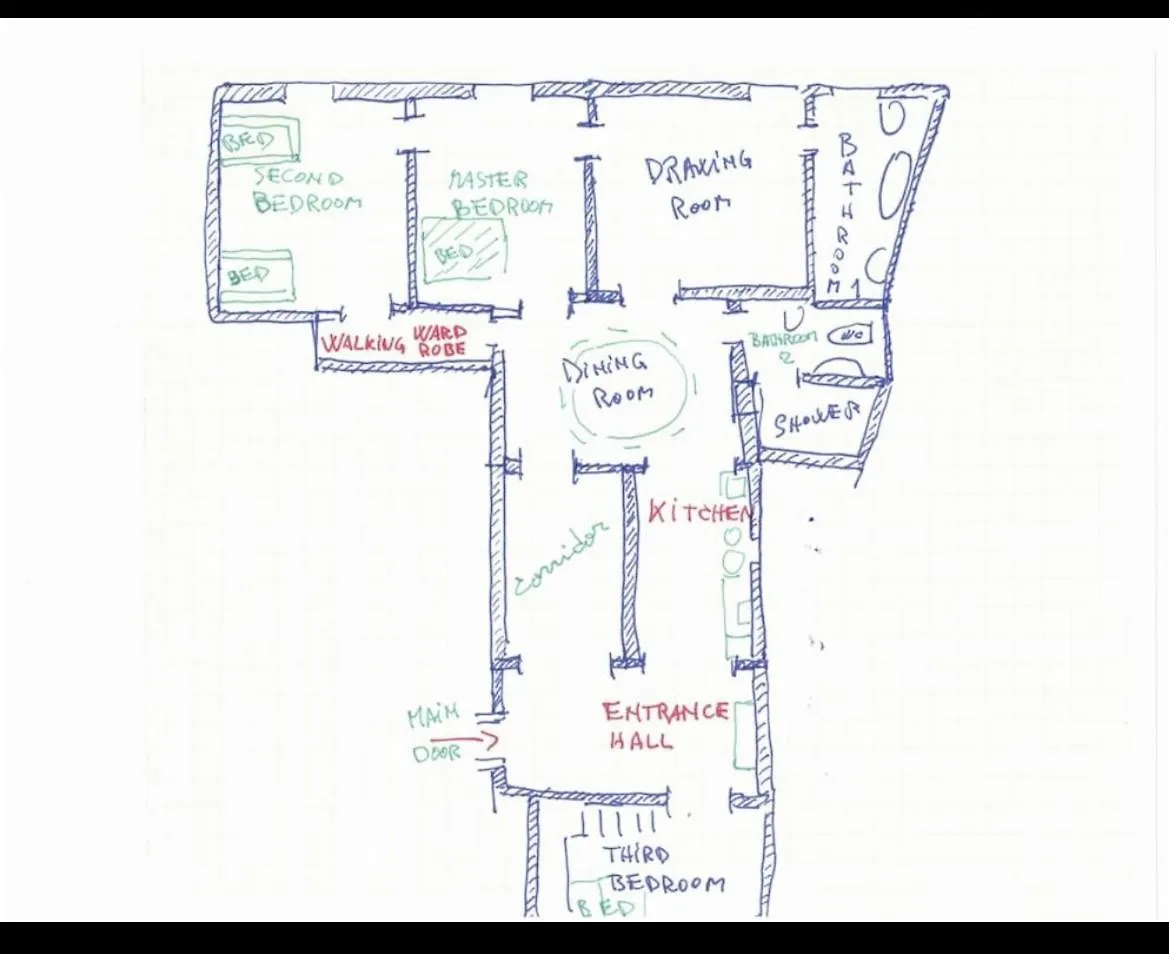 BED
SECOND
BEDROOM
BED
MASTER
BEDROOM
BED
DRAWING
ROOM
BATHROOM 1
WALKING WARD
ROBE
DINING
ROOM
BATHROOM
2
WC
SHOWER
KITCHEN
corridor
ENTRANCE
HALL
MAIN
DOOR
THIRD
BEDROOM
BED